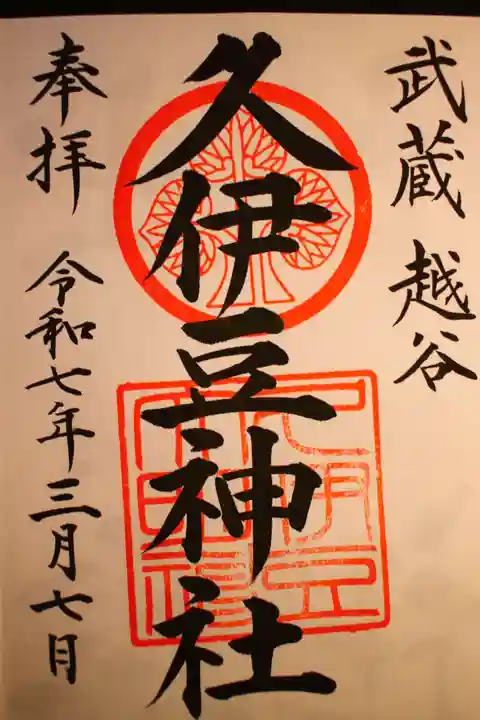 武蔵 越谷
久伊豆神社
奉拝 令和七年三月七日